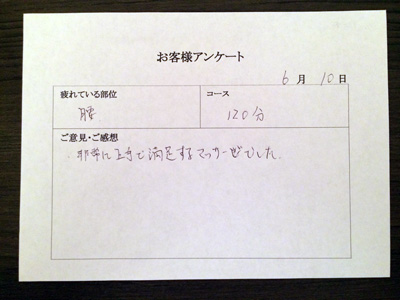 お客様アンケート
6月10日
疲れている部位
コース
腰
120分
ご意見・ご感想
・非常に上手で満足するマッサージでした。